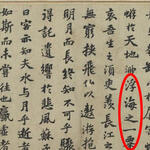 蝣於天地渺浮海之一粟
哀吾生之須臾羨長江之
無窮挾飛仙以遨遊抱
明月而長終知不可乎驟
得託遺響於悲風蘇子
曰客亦知夫水與月乎逝者
如斯而未嘗往也贏虛